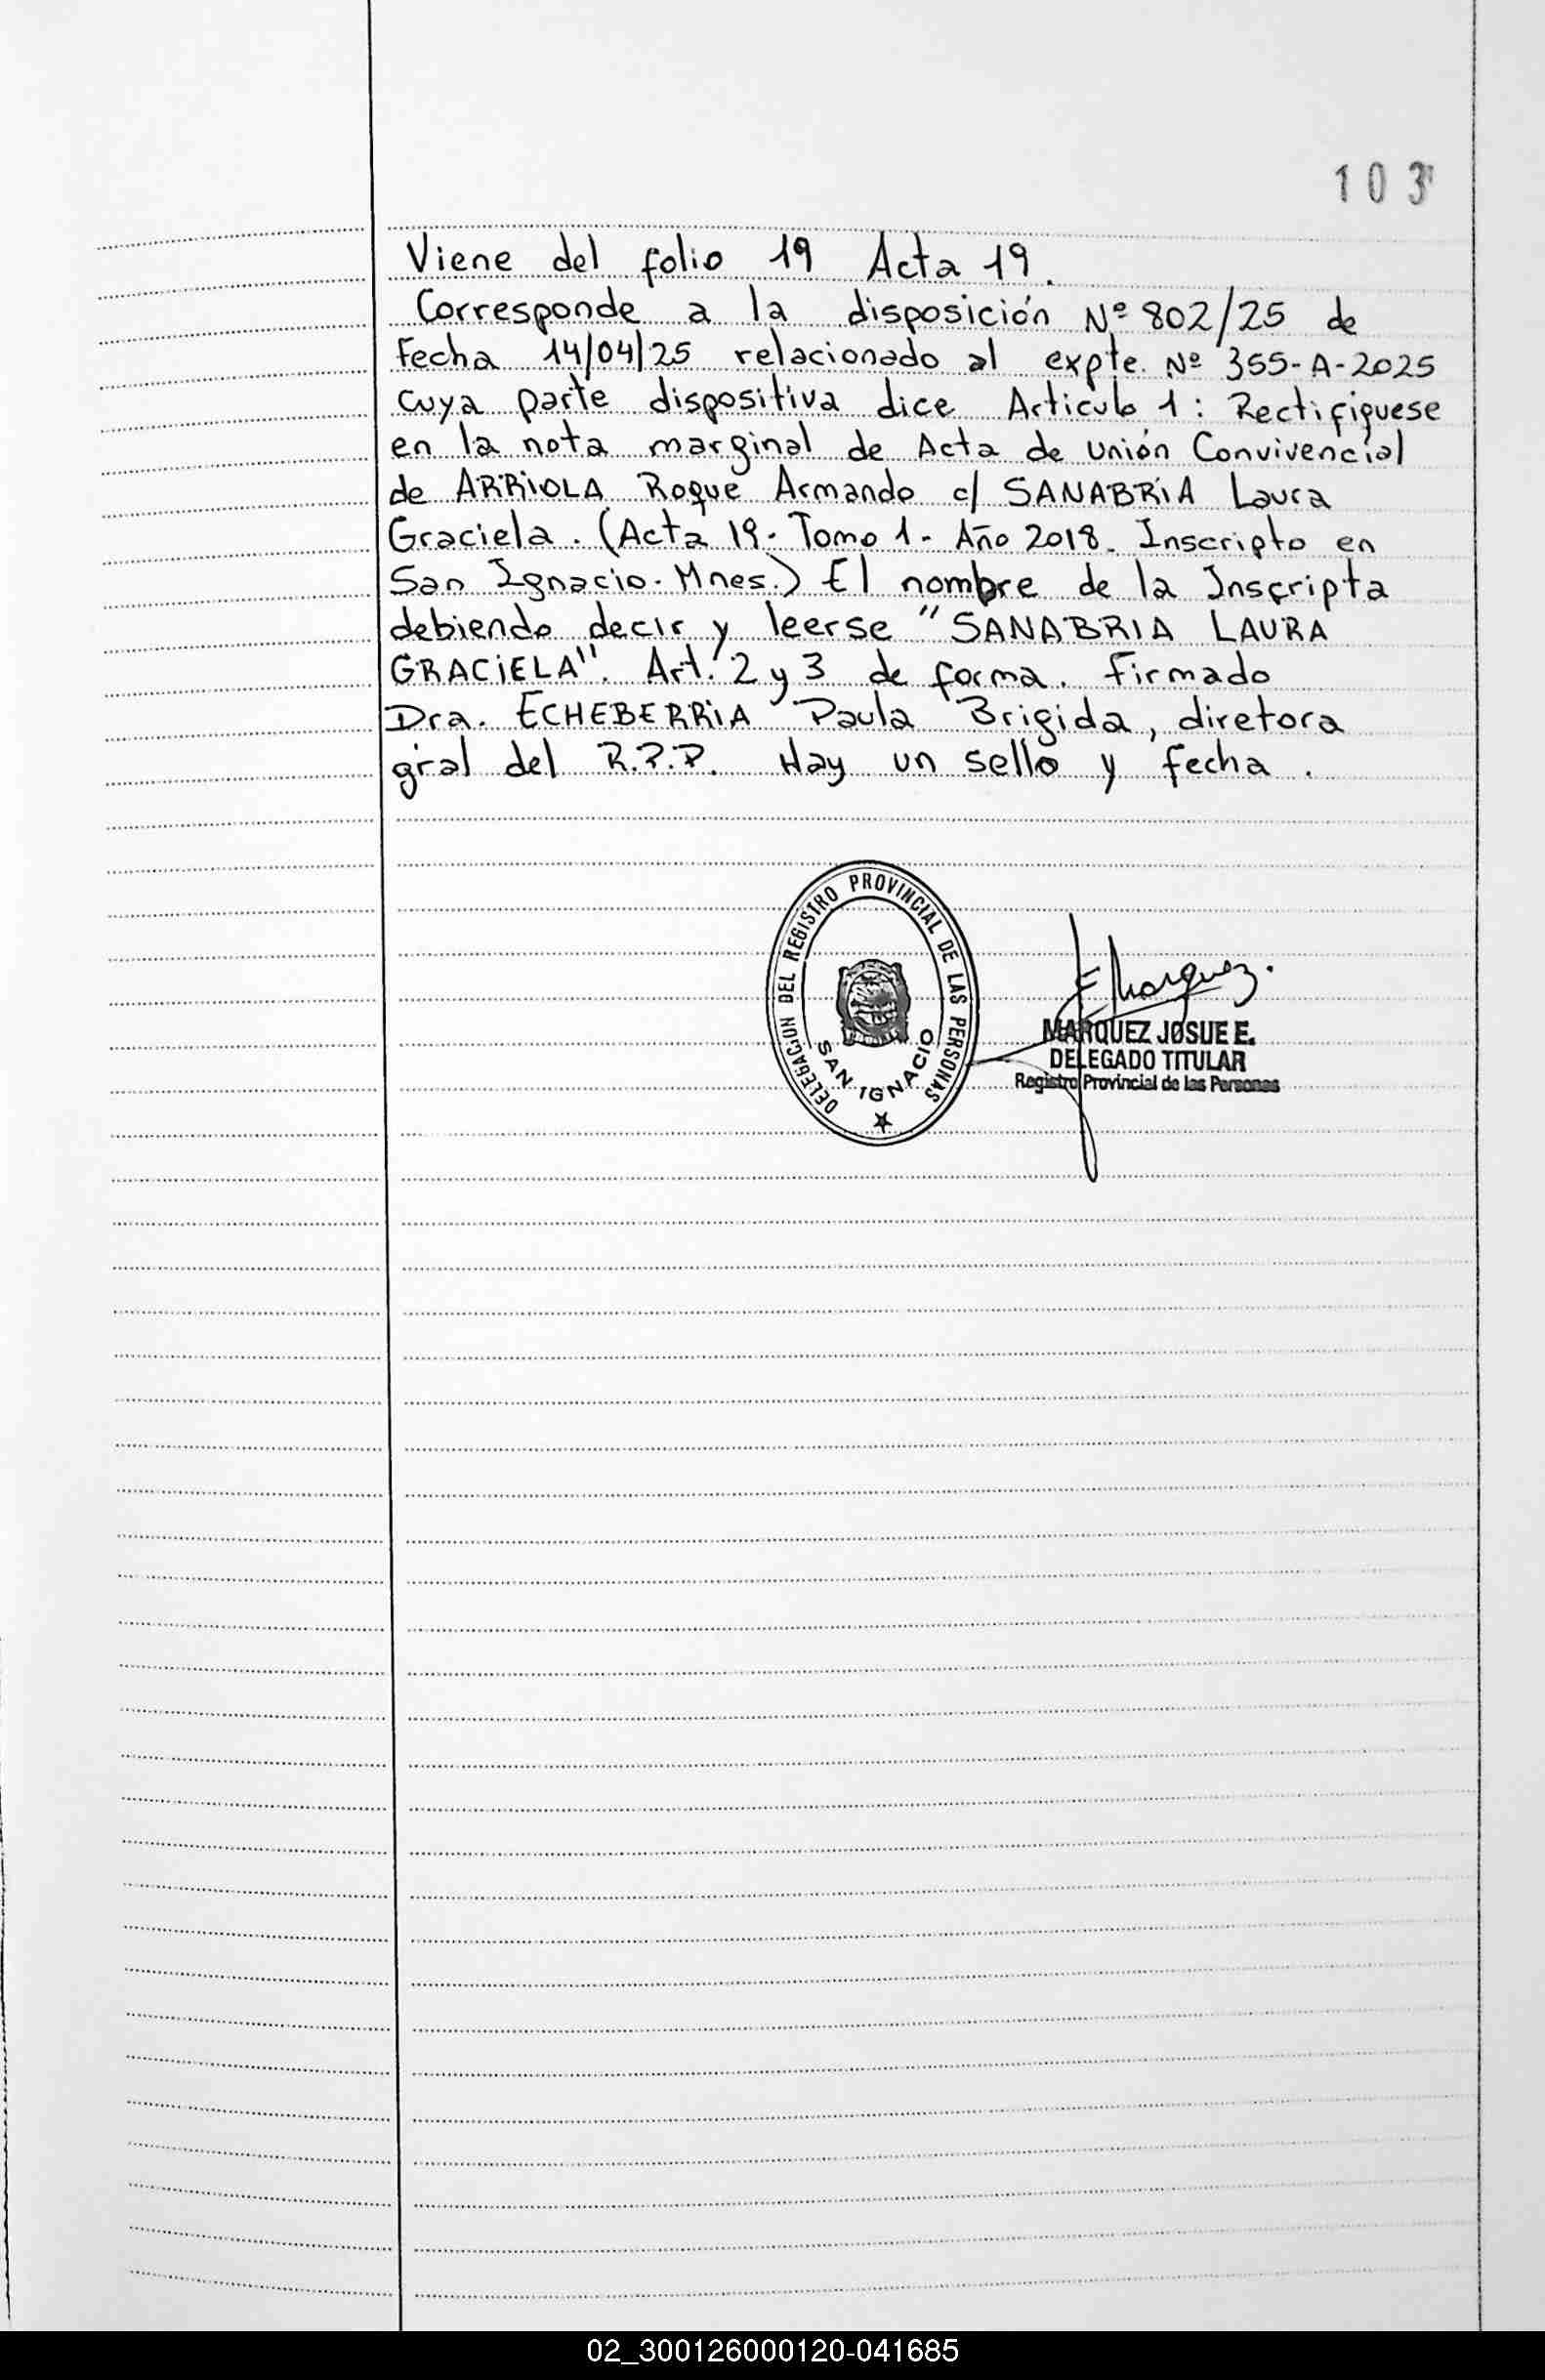 103
Viene del folio 19 Acta 19.
Corresponde a la disposición Nº 802/25 de
Fecha 14/04/25 relacionado al expte. Nº 355-A-2025
cuya parte dispositiva dice Articulo 1: Rectifiquese
en la nota marginal de Acta de unión Convivencial
de ARRIOLA Roque Armando c/ SANABRIA Laura
Graciela. (Acta 19. Tomo 1- Año 2018. Inscripto en
San Ignacio. Mnes.) El nombre de la Inscripta
debiendo decir y leerse "SANABRIA LAURA
GRACIELA". Art. 2 y 3 de forma. Firmado
Dra. ECHEBERRIA Paula Brigida, diretora
gral del R.P.P. Hay un sello y fecha.
DELEGACION DEL REGISTRO PROVINCIAL DE LAS PERSONAS
SAN IGNACIO
E Marquez.
MARQUEZ JOSUE E.
DELEGADO TITULAR
Registro Provincial de las Personas
02_300126000120-041685